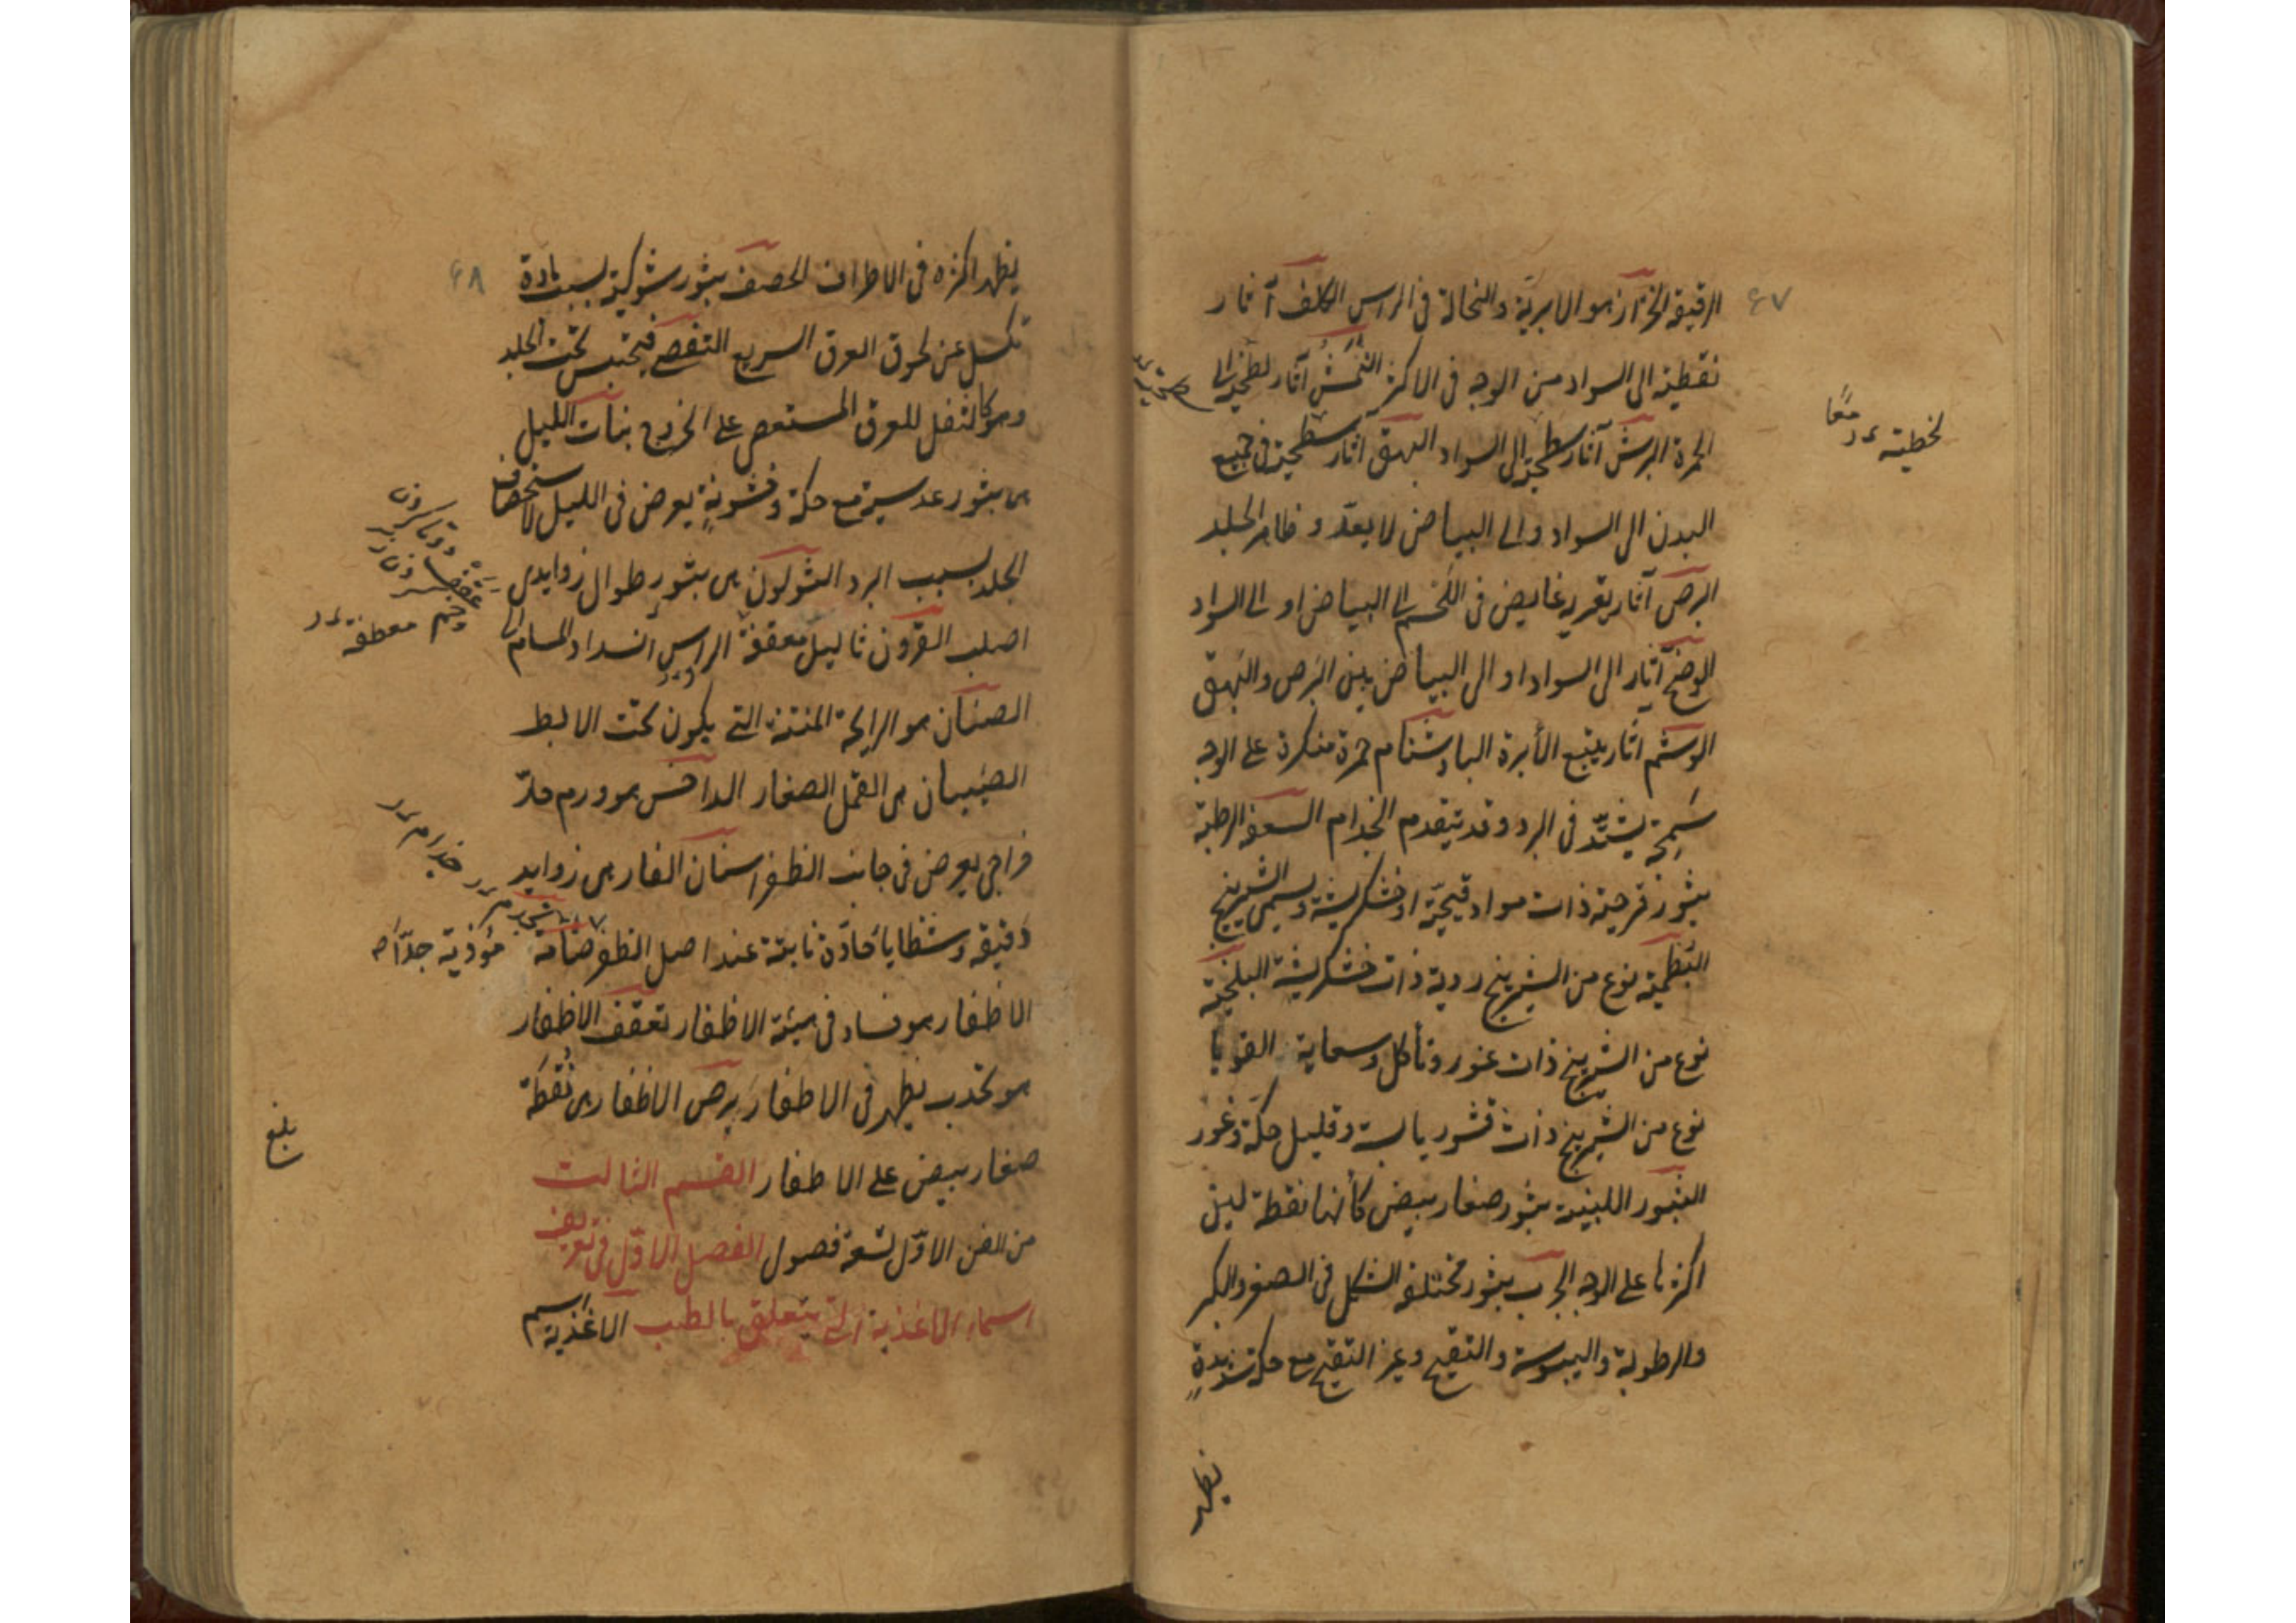 ٤٧
الرقيقة الحزاز هو الابرية والنخالة فى الراس الكلف آثار
نقطية الى السواد من الوجه فى الاكثر النمش آثار لطخية الى
الحمرة البرش آثار سطحية الى السواد البهق آثار سطحية فى جميع
البدن الى السواد والى البياض لا يعدّ و ظاهر الجلد
البرص آثار بقرية غايض فى اللحم الى البياض او الى السواد
الوضح آثار الى السواد او الى البياض بين البرص والبهق
الوشم آثار يتبع الأبرة البادشنام حمرة منكرة على الوجه
سمجة يشتدّ فى البرد وقد يتقدم الجذام السعفة الرطبة
بثور قرحية ذات مواد قيحيّة او خشكريشة ويسمى الشيرينج
البطمية نوع من الشيرينج ردية ذات خشكريشة البلخية
نوع من الشيرينج ذات غور وتأكل وسعاية القوبا
نوع من الشيرينج ذات قشور يابسة وقليل حكّة وغور
البثور اللبنية بثور صغار بيض كأنها نقطة لبن
اكثرها على الوجه الجرب بثور مختلفة الشكل فى الصغر والكبر
والرطوبة واليبوسة والتقيح وغير التقيح مع حكة شديدةٍ
يظهر
لخطية معًا
٤٨
يظهر اكثره فى الاطراف الحصف بثور شوكية بسبب مادة
تكسل عن لحوق العرق السريع التفصى فيحتبس تحت الجلد
وهو كالثفل للعرق المستعصى على الخروج بنات الليل
هى بثور عدسية مع حكة وخشونةٍ يعرض فى الليل لاستحصاف
الجلد بسبب البرد الثولون هى بثور طوال زوايدى
اصلب القرون ثاليل معقفة الراس انسداد المسام
الصنان هو الرايحة المنتنة التى يكون تحت الابط
الصيبان هى القمل الصغار الداحس هو ورم حارّ
خراجى يعرض فى جانب الظفر اسنان الفار هى زوايد
دقيقة وشظايا حادّة نابتة عند اصل الظفر مؤذية جدّا
الاظفار هو فساد فى هيئة الاظفار تعقف الاظفار
هو تحدب يظهر فى الاظفار برص الاظفار هى نقطة
صغار بيض على الاظفار القسم الثالث
من الفن الاوّل تسعة فصول الفصل الاوّل فى تعريف
اسماء الاغذية التى يتعلق بالطب الاغذية اسم
معطفة
جذام
بلغ